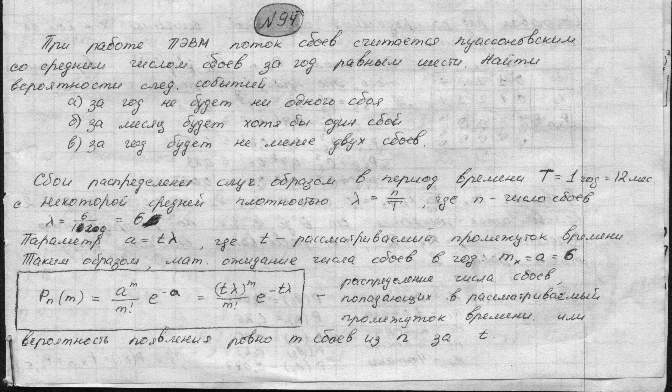 №94
При работе ПЭВМ поток сбоев считается пуассоновским
со средним числом сбоев за год равным шести. Найти
вероятности след. событий
а) за год не будет ни одного сбоя
б) за месяц будет хотя бы один сбой
в) за год будет не менее двух сбоев.
Сбои распределены случ образом в период времени T = 1 год = 12 мес
с некоторой средней плотностью λ = n/T, где n - число сбоев
λ = 6/1 год = 6
Параметр a = tλ, где t - рассматриваемый промежуток времени
Таким образом, мат. ожидание числа сбоев в год: mₓ = a = 6
Pₙ(m) = aᵐ/m! e⁻ᵃ = (tλ)ᵐ/m! e⁻ᵗλ - распределение числа сбоев,
попадающих в рассматриваемый
промежуток времени или
вероятность появления ровно m сбоев из n за t.